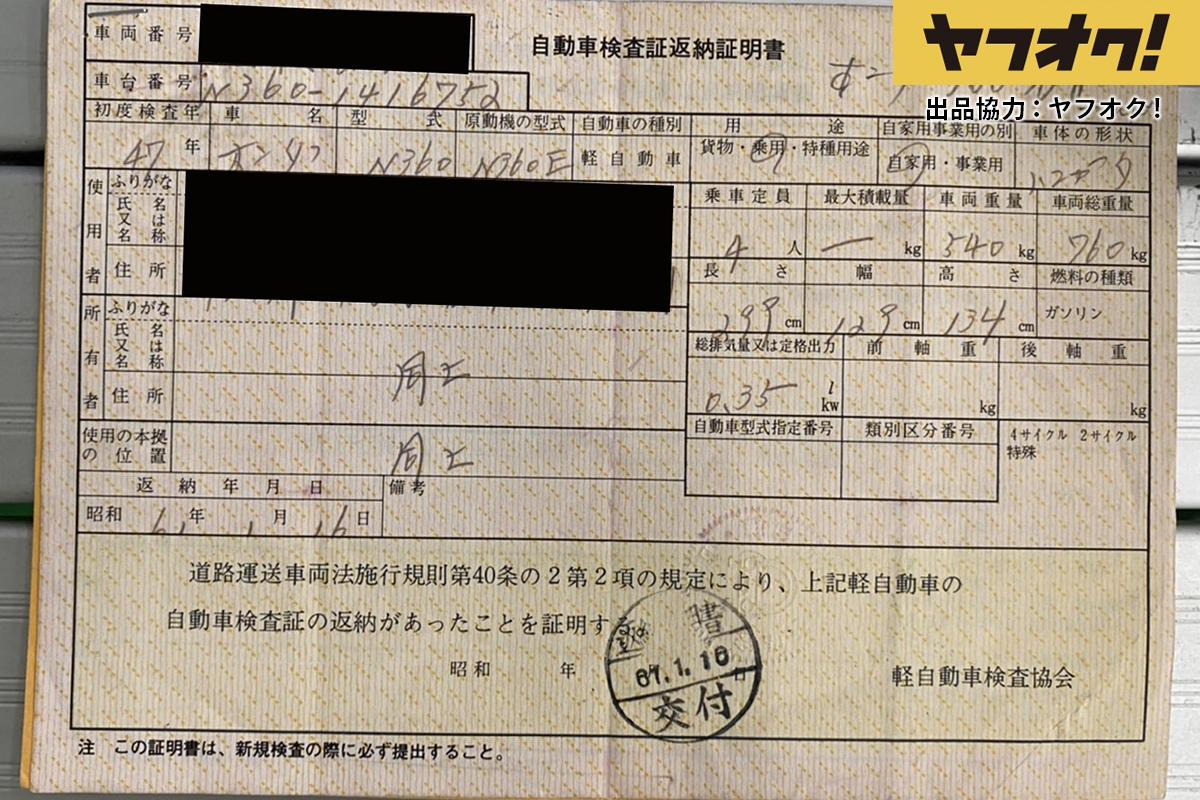 ヤフオク!
出品協力：ヤフオク！
車両番号
自動車検査証返納証明書
車台番号 N360-1416752
初度検査年 車名 型式 原動機の型式 自動車の種別 用途 自家用事業用の別 車体の形状
47年 ホンダ N360 N360E 軽自動車 貨物・乗用・特種用途 自家用・事業用
使用者 ふりがな
氏名又は名称
住所
乗車定員 最大積載量 車両重量 車両総重量
4人 ー kg 540 kg 760 kg
長さ 幅 高さ 燃料の種類
299 cm 129 cm 134 cm ガソリン
所有者 ふりがな
氏名又は名称
住所
同上
総排気量又は定格出力 前軸重 後軸重
0.35 l kw kg kg
使用の本拠の位置 同上
自動車型式指定番号 類別区分番号 4サイクル 2サイクル
特殊
返納年月日 備考
昭和 61年 1月 16日
道路運送車両法施行規則第40条の2第2項の規定により、上記軽自動車の
自動車検査証の返納があったことを証明す
昭和 年
61.1.16
交付
軽自動車検査協会
注 この証明書は、新規検査の際に必ず提出すること。